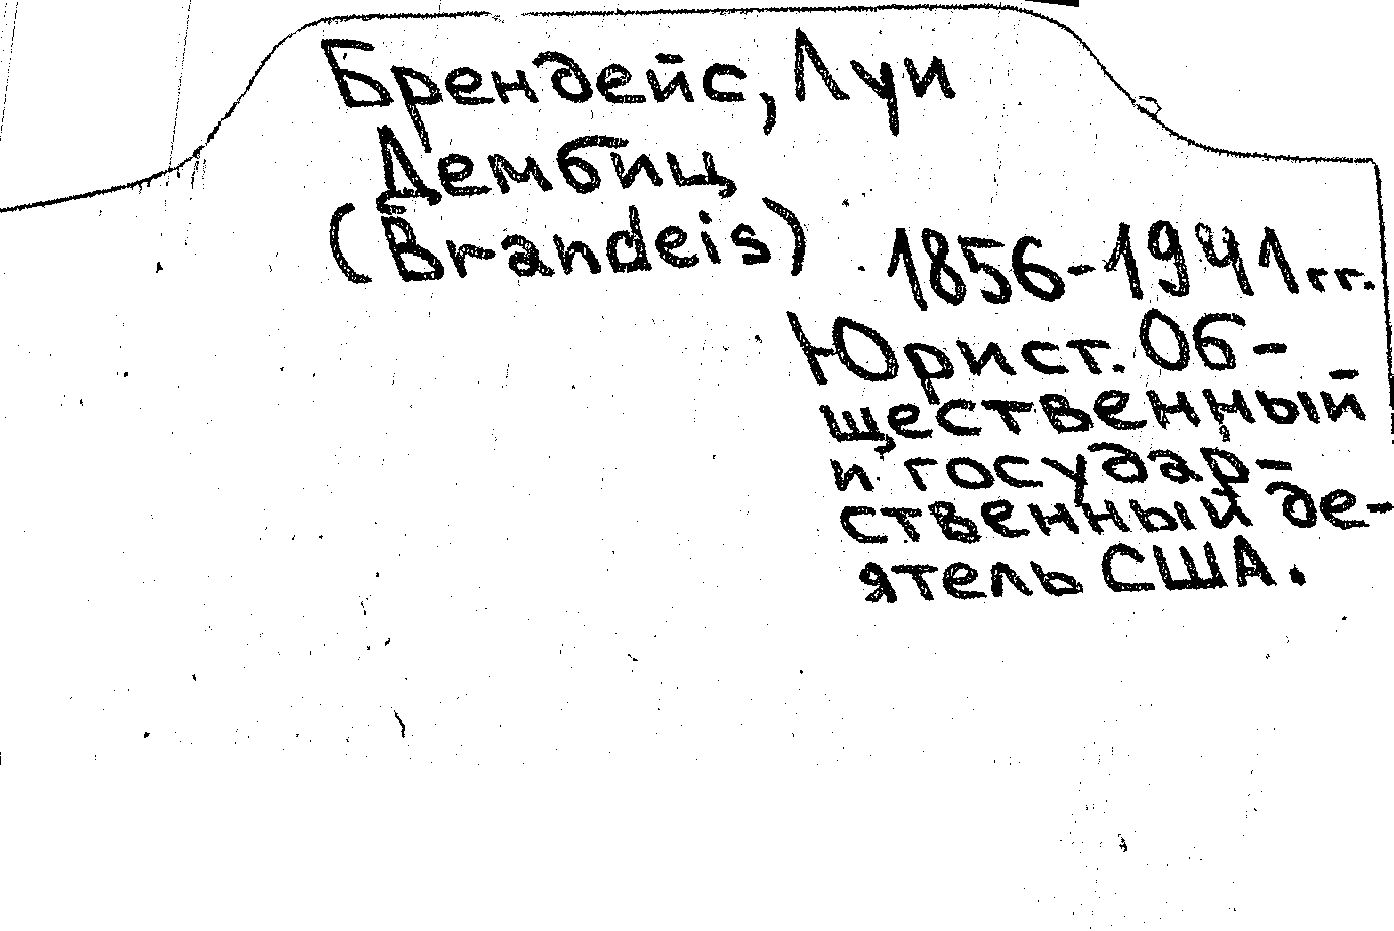 Брендейс, Луи
Дембиц
(Brandeis)
1856-1941 гг.
Юрист. Об-
щественный
и государ-
ственный де-
ятель США.